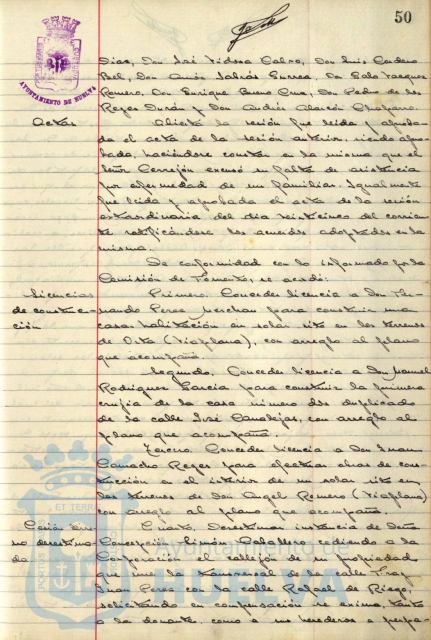 50
AYUNTAMIENTO DE HUELVA
Díaz, Don José Tidosa Calvo, Don Luis Cordero
Bel, Don Amós Sabrás Gurrea, Don Galo Vazquez
Romero, Don Enrique Bueno Cruz, Don Pedro de los
Reyes Durán y Don Andrés Alarcón Chaparro.
Actas
Abierta la sesión fue leida y aproba-
da el acta de la sesión anterior, siendo apro-
bada, haciéndose constar en la misma que el
Señor Cerrejón excusó su falta de asistencia
por enfermedad de un familiar. Igualmente
fue leida y aprobada el acta de la sesión
extraordinaria del dia veinticinco del corrien-
te ratificándose los acuerdos adoptados en la
misma.
De conformidad con lo informado por la
Comisión de Fomento, se acordó:
Licencias
de construc-
ción
Primero. Conceder licencia a Don Fer-
nando Perez Merchan para construir una
casa habitación en solar sito en los terrenos
de Orta (Viaplana), con arreglo al plano
que acompaña.
Segundo. Conceder licencia a Don Manuel
Rodriguez Garcia para construir la primera
crujia de la casa número dos duplicado
de la calle José Canalejas, con arreglo al
plano que acompaña.
Tercero. Conceder licencia a Don Juan
Camacho Reyes para efectuar obras de cons-
trucción en el interior de un solar sito en
los terrenos de Don Angel Romero (Viaplana)
con arreglo al plano que acompaña.
Cesión
no desestima-
da
Cuarto. Desestimar instancia de Doña
Concepción Limón Caballero cediendo a la
Corporación el callejón de su propiedad
que une la transversal de la calle Fray
Juan Perez con la calle Rafael de Riego,
solicitando en compensación se exima, tanto
a la donante, como a sus herederos a perpe-
PORTUS MARIS ET TERRAE CUSTODIA
Ayuntamiento de
HUELVA